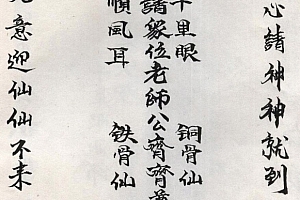 心請神神就到
千里眼 銅骨仙
請眾位老師公齊齊
順風耳 鉄骨仙
意迎仙仙不来